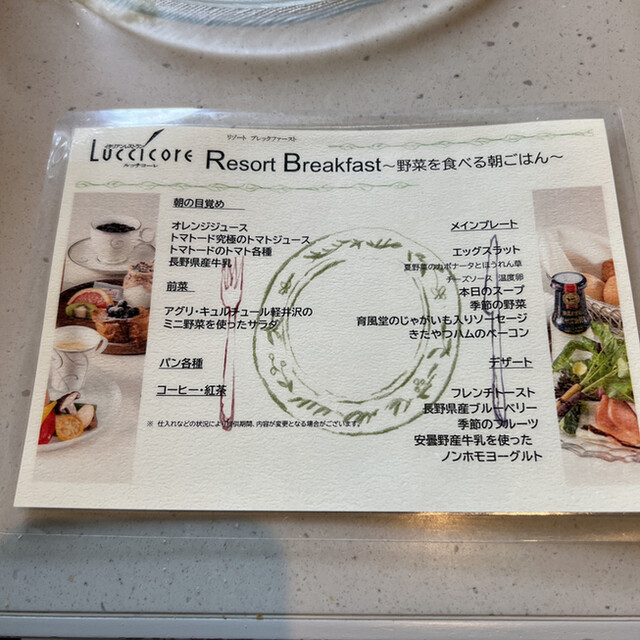 イタリアンレストラン
LUCCICORE
ルッチコーレ
リゾート ブレックファースト
Resort Breakfast～野菜を食べる朝ごはん～
朝の目覚め
オレンジジュース
トマトード究極のトマトジュース
トマトードのトマト各種
長野県産牛乳
前菜
アグリ・キュルチュール軽井沢の
ミニ野菜を使ったサラダ
パン各種
コーヒー・紅茶
※ 仕入れなどの状況により提供期間、内容が変更となる場合がございます。
メインプレート
エッグスラット
夏野菜のカポナータとほうれん草
チーズソース 温度卵
本日のスープ
季節の野菜
育風堂のじゃがいも入りソーセージ
きたやつハムのベーコン
デザート
フレンチトースト
長野県産ブルーベリー
季節のフルーツ
安曇野産牛乳を使った
ノンホモヨーグルト